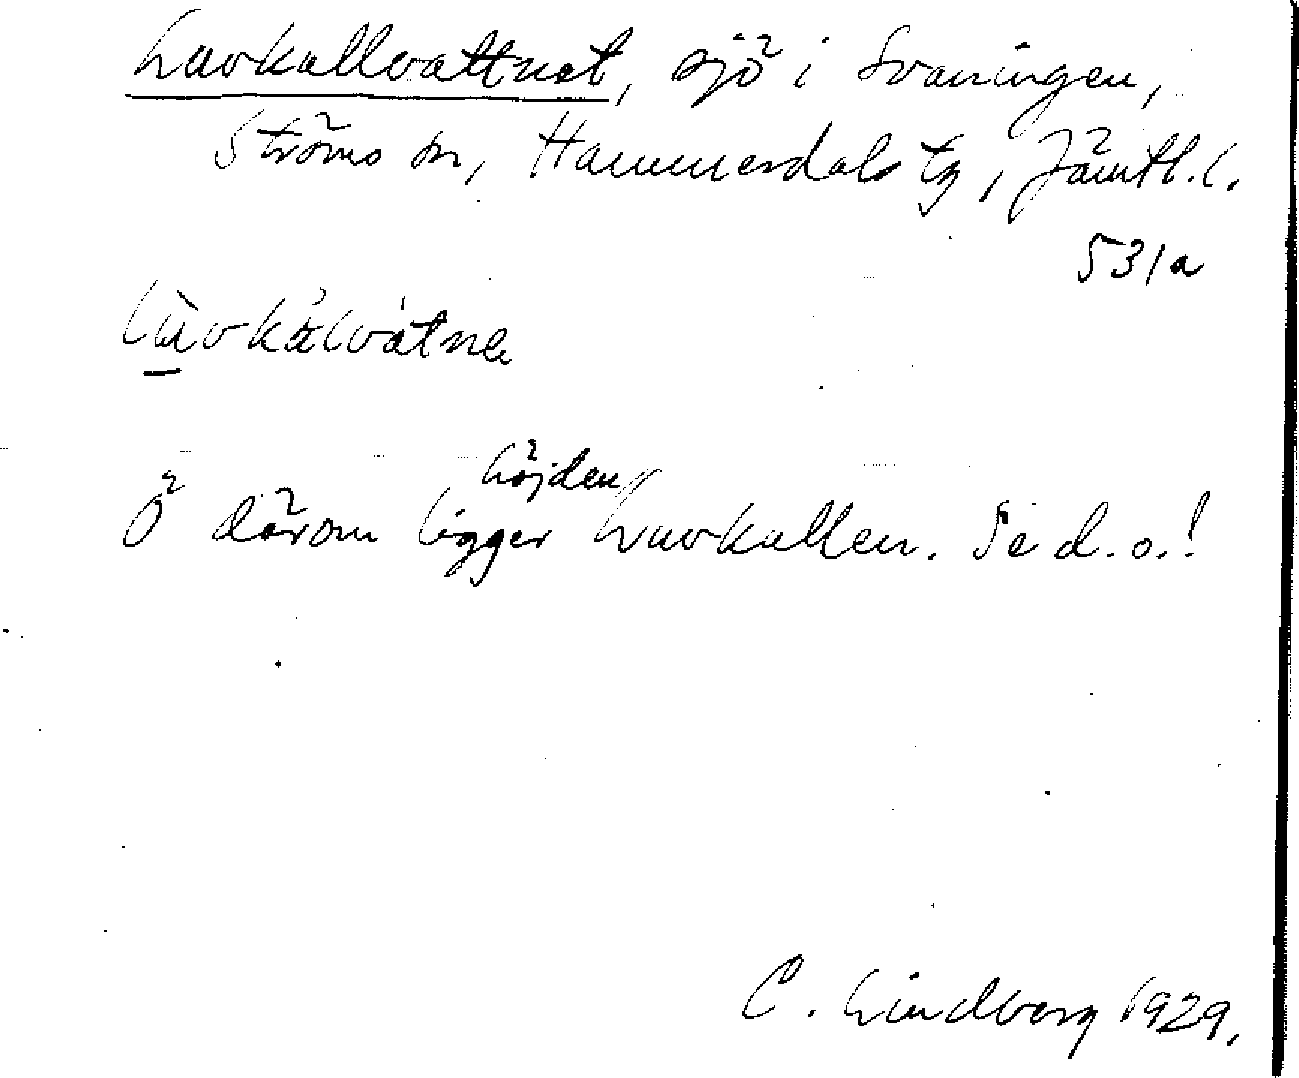 Lavkallvattnet, sjö i Svaningen,
Ströms sn, Hammerdals tg, Jämtl. l.
531a
làvkálvátnə
Ö därom ligger höjden Lavkallen. Se d.o.!
C. Lindberg 1929.